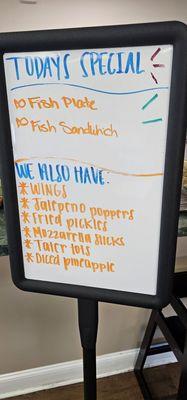 TODAYS SPECIAL
Fish Plate
Fish Sandwich
WE ALSO HAVE:
* WINGS
* Jalepeno poppers
* Fried pickles
* Mozzarella sticks
* Tater tots
* Diced pineapple